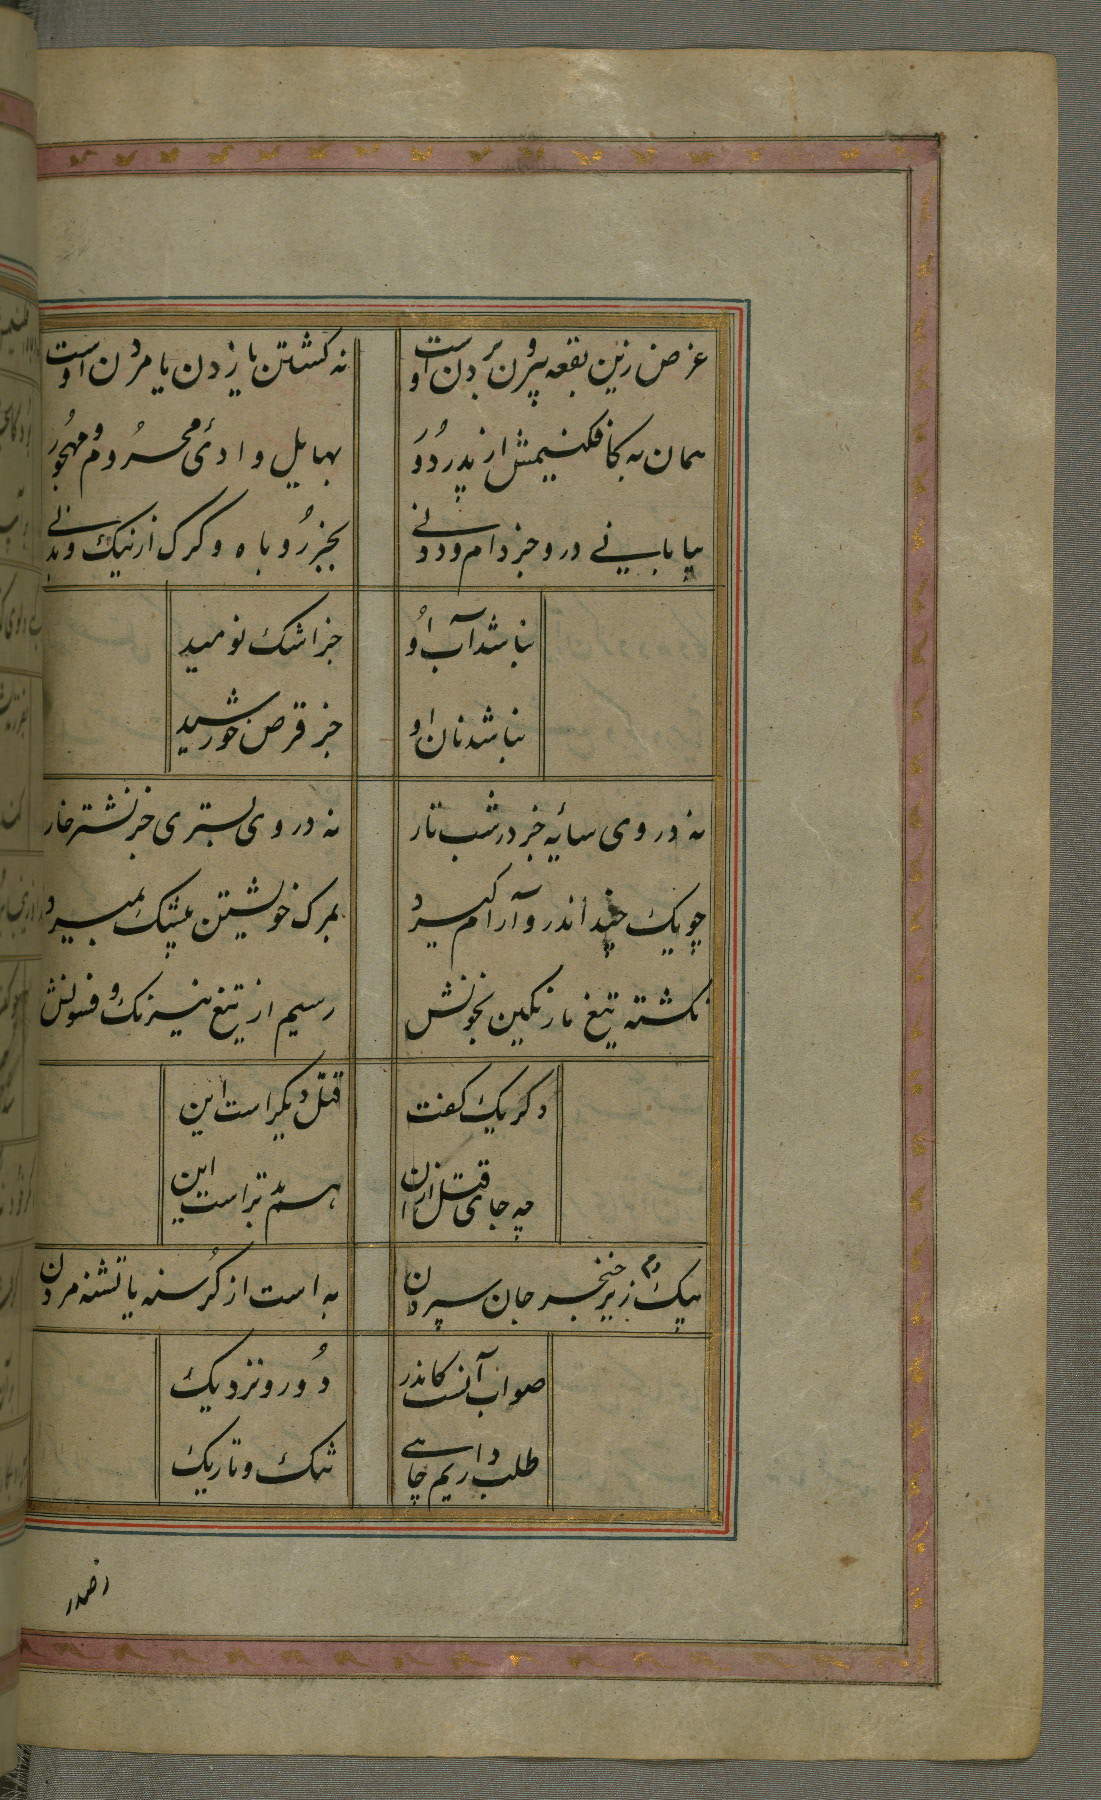 غرض زین بقعه بیرون بردن اوست نه کشتن یا زدن یا مردن اوست
همان به کافکنیمش از پدر دور بهایل وادئ محروم و مهجور
بیابانی درو جز دام و ددنی بجز روباه و گرک از نیک و بدنی
نباشد آب او جز اشک نومید
نباشد نان او جز قرص خورشید
نه در وی سایه جز در شب تار نه در وی بستری جز نشتر خار
چو یک چند اندر و آرام گیرد بمرک خویشتن بیشک بمیرد
نکشته تیغ ما رنکین بخونش رسیم از تیغ نیرنک و فسونش
دکر یک کفت قتل دیکر است این
چه جای قتل از ان هم بدتر است این
بیکدم زیر خنجر جان سپردن به است از گرسنه یا تشنه مردن
صواب آنست کاندر دور و نزدیک
طلب داریم چاهی تنک و تاریک